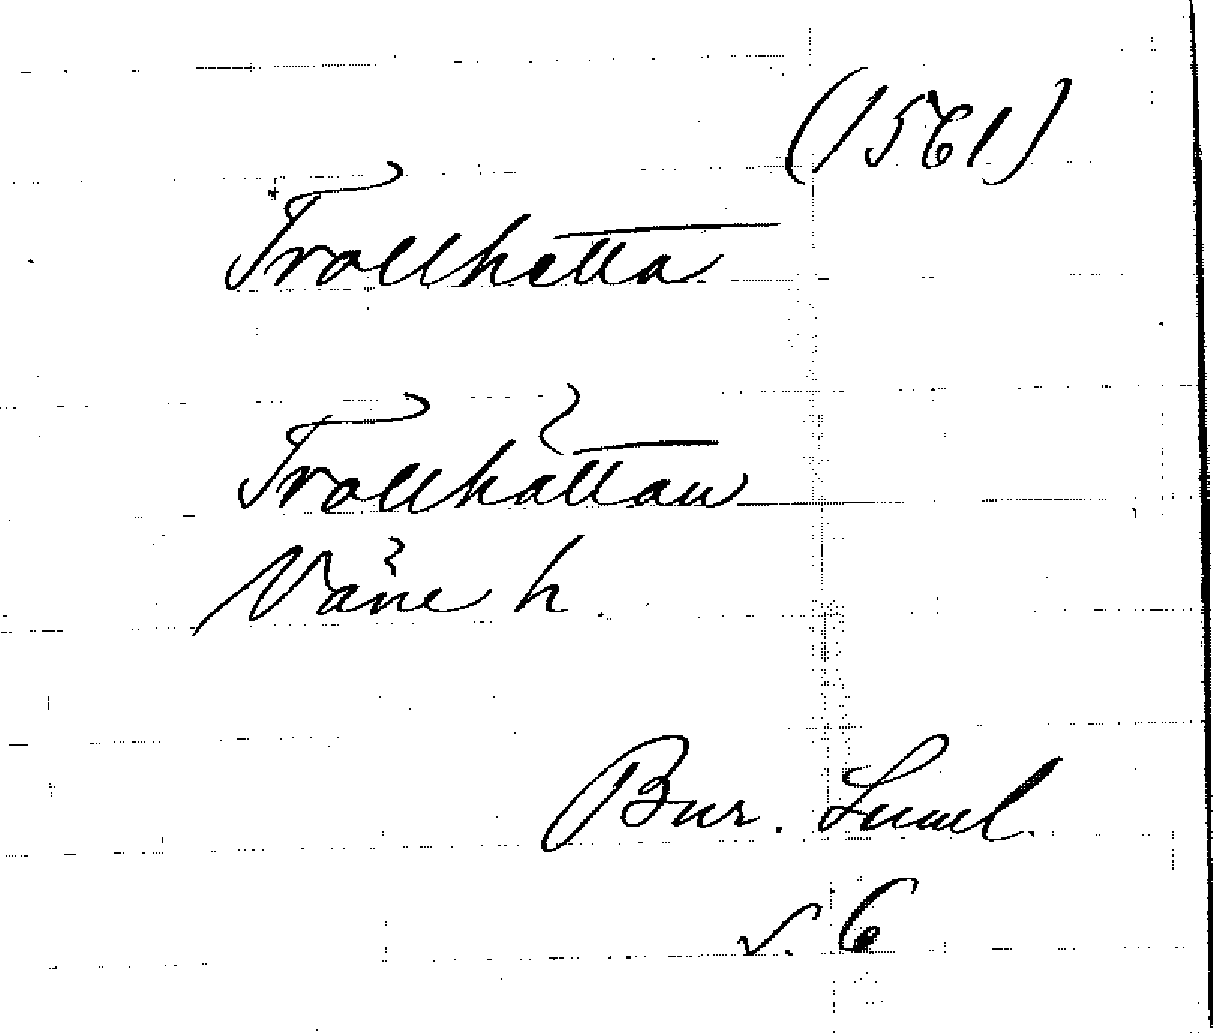 (1561)
Trollhetta
Trollhättan
Väne h.
Bur. Lund
s. 6